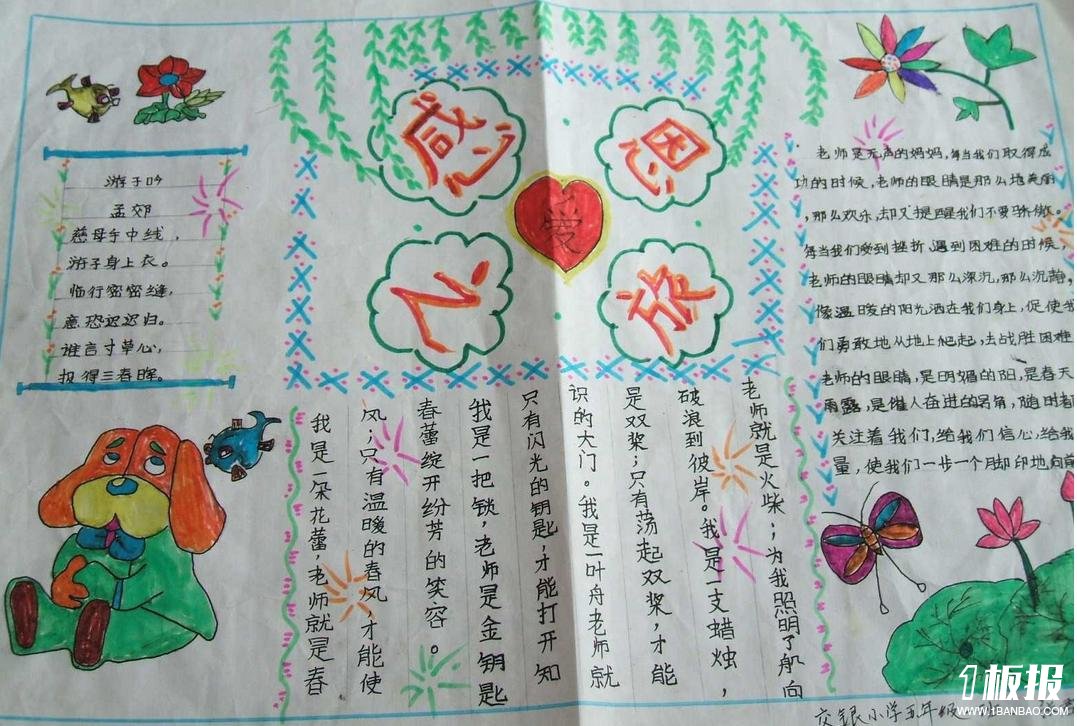 感恩
之旅
爱
游子吟
孟郊
慈母手中线，
游子身上衣。
临行密密缝，
意恐迟迟归。
谁言寸草心，
报得三春晖。
我是一朵花蕾，老师就是春
风；只有温暖的春风，才能使
春蕾绽开纷芳的笑容。
我是一把锁，老师是金钥匙
只有闪光的钥匙，才能打开知
识的大门。我是一叶舟老师就
是双桨；只有荡起双桨，才能
破浪到彼岸。我是一支蜡烛，
老师就是火柴；为我照明了航向
老师是无声的妈妈，每当我们取得成
功的时候，老师的眼睛是那么地美丽
，那么欢乐，却又提醒我们不要骄傲。
每当我们受到挫折，遇到困难的时候，
老师的眼睛却又那么深沉，那么沉静，
像温暖的阳光洒在我们身上，促使我
们勇敢地从地上爬起，去战胜困难
老师的眼睛，是明媚的阳，是春天
雨露，是催人奋进的号角，随时都
关注着我们，给我们信心，给我
量，使我们一步一个脚印地向前
交银小学五年级
1板报
WWW.1BANBAO.COM